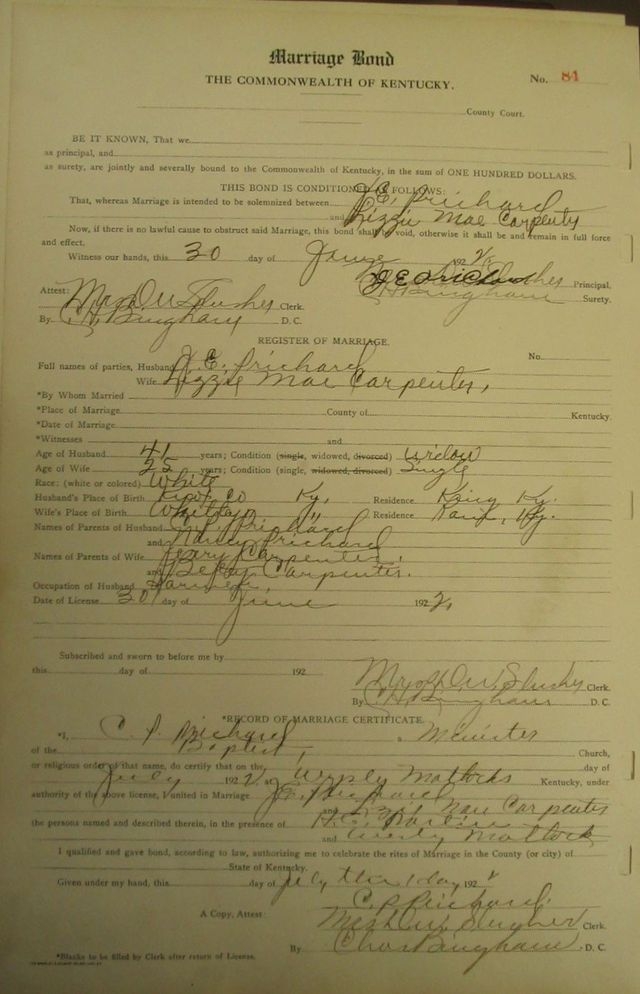 Marriage Bond
THE COMMONWEALTH OF KENTUCKY. No. 84
County Court.
BE IT KNOWN, That we
as principal, and
as surety, are jointly and severally bound to the Commonwealth of Kentucky, in the sum of ONE HUNDRED DOLLARS.
THIS BOND IS CONDITIONED AS FOLLOWS:
That, whereas Marriage is intended to be solemnized between J. E. Prichard
and Lizzie Mae Carpenter
Now, if there is no lawful cause to obstruct said Marriage, this bond shall be void, otherwise it shall be and remain in full force
and effect.
Witness our hands, this 30 day of June 1922
J E Prichard Principal,
Attest: Slusher Clerk. C H Bingham Surety.
By C. H. Bingham D. C.
REGISTER OF MARRIAGE.
No.
Full names of parties, Husband J. E. Prichard
Wife Lizzie Mae Carpenter,
*By Whom Married
*Place of Marriage County of Kentucky.
*Date of Marriage
*Witnesses and
Age of Husband 41 years; Condition (single, widowed, divorced) widow
Age of Wife 25 years; Condition (single, widowed, divorced) Single
Race: (white or colored) White
Husband's Place of Birth Knox Co Ky, Residence Ky.
Wife's Place of Birth Whitley " Residence Ky.
Names of Parents of Husband Prichard
and Nancy Prichard
Names of Parents of Wife Carpenter,
and Betty Carpenter.
Occupation of Husband Farmer,
Date of License 30 day of June 1922,
Subscribed and sworn to before me by
this day of 192
Slusher Clerk.
By C. H. Bingham D. C.
*RECORD OF MARRIAGE CERTIFICATE
*I, C. P. Prichard, Minister
of the Baptist, Church,
or religious order of that name, do certify that on the day of
July 1922 at Mattocks Kentucky, under
authority of the above license, I united in Marriage J. E. Prichard
and Lizzie Mae Carpenter
the persons named and described therein, in the presence of
and Mattock
I qualified and gave bond, according to law, authorizing me to celebrate the rites of Marriage in the County (or city) of
State of Kentucky.
Given under my hand, this day of July the 1 day, 1922
C P Prichard.
A Copy, Attest: Slusher Clerk.
By Chas Bingham D. C.
*Blanks to be filled by Clerk after return of License.